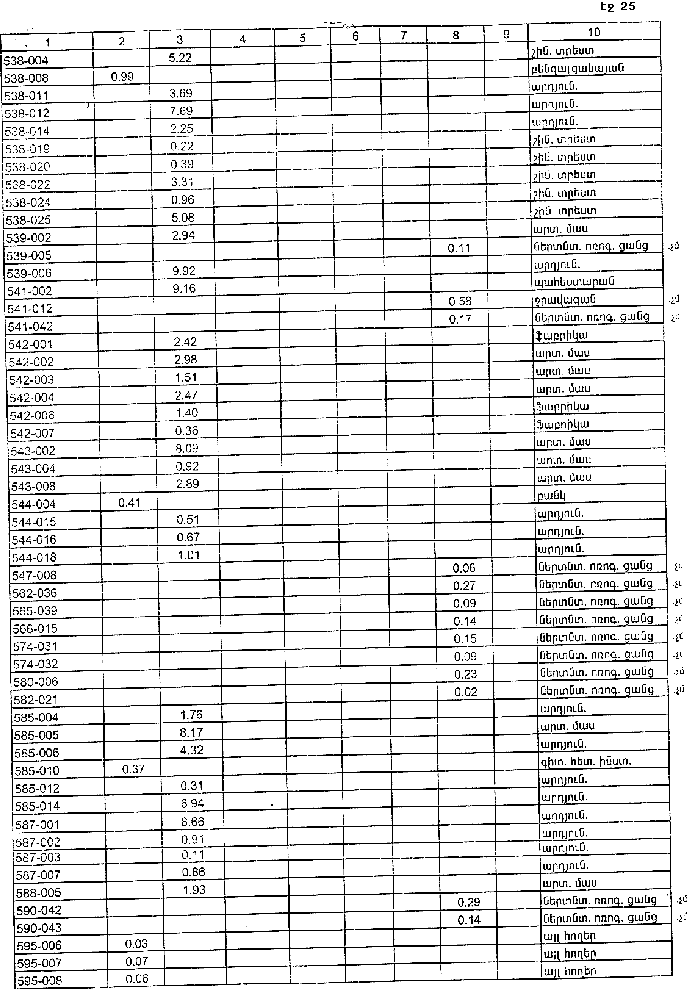 Էջ 25
1 2 3 4 5 6 7 8 9 10
538-004 5.22 շին. տրեստ
538-008 0.99 բենզալցակայան
538-011 3.69 արդյուն.
538-012 7.69 արդյուն.
538-014 2.25 արդյուն.
538-019 0.22 շին. տրեստ
538-020 0.39 շին. տրեստ
538-022 3.31 շին. տրեստ
538-024 0.96 շին. տրեստ
538-025 5.08 շին. տրեստ
539-002 2.94 արտ. մաս
539-005 0.11 ներտնտ. ոռոգ. ցանց
539-006 9.92 արդյուն.
541-002 9.16 պահեստարան
541-012 0.58 ջրավազան
541-042 0.17 ներտնտ. ոռոգ. ցանց
542-001 2.42 ֆաբրիկա
542-002 2.98 արտ. մաս
542-003 1.51 արտ. մաս
542-004 2.47 արտ. մաս
542-006 1.40 ֆաբրիկա
542-007 0.36 ֆաբրիկա
543-002 8.09 արտ. մաս
543-004 0.92 արտ. մաս
543-008 2.89 արտ. մաս
544-004 0.41 բանկ
544-015 0.51 արդյուն.
544-016 0.67 արդյուն.
544-018 1.01 արդյուն.
547-008 0.06 ներտնտ. ոռոգ. ցանց
562-036 0.27 ներտնտ. ոռոգ. ցանց
565-039 0.09 ներտնտ. ոռոգ. ցանց
566-015 0.14 ներտնտ. ոռոգ. ցանց
574-031 0.15 ներտնտ. ոռոգ. ցանց
574-032 0.09 ներտնտ. ոռոգ. ցանց
580-006 0.23 ներտնտ. ոռոգ. ցանց
582-021 0.02 ներտնտ. ոռոգ. ցանց
585-004 1.76 արդյուն.
585-005 8.17 արտ. մաս
585-006 4.32 արդյուն.
585-010 0.37 գիտ. հետ. ինստ.
585-012 0.31 արդյուն.
585-014 6.94 արդյուն.
587-001 6.66 արդյուն.
587-002 0.91 արդյուն.
587-003 0.11 արդյուն.
587-007 0.66 արդյուն.
588-005 1.93 արտ. մաս
590-042 0.29 ներտնտ. ոռոգ. ցանց
590-043 0.14 ներտնտ. ոռոգ. ցանց
595-006 0.03 այլ հողեր
595-007 0.07 այլ հողեր
595-008 0.06 այլ հողեր